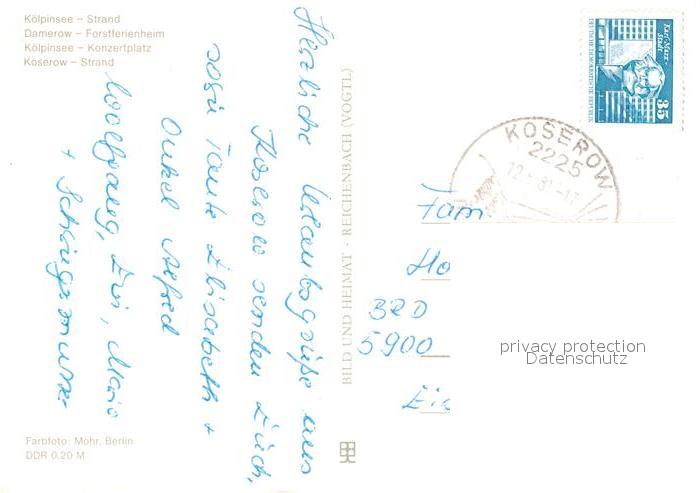 Kölpinsee – Strand
Damerow – Forstferienheim
Kölpinsee – Konzertplatz
Koserow – Strand
Herzliche Urlaubsgrüße aus
Koserow senden Euch,
Tante Elisabeth +
Onkel Alfred
Wolfgang, Evi, Mario
+ Schwiegermutter
BILD UND HEIMAT · REICHENBACH (VOGTL)
Karl-Marx-
Stadt
DEUTSCHE DEMOKRATISCHE REPUBLIK
35
KOSEROW
2225
Fam
Ho
BRD
5900
privacy protection
Datenschutz
Farbfoto: Mohr, Berlin
DDR 0,20 M